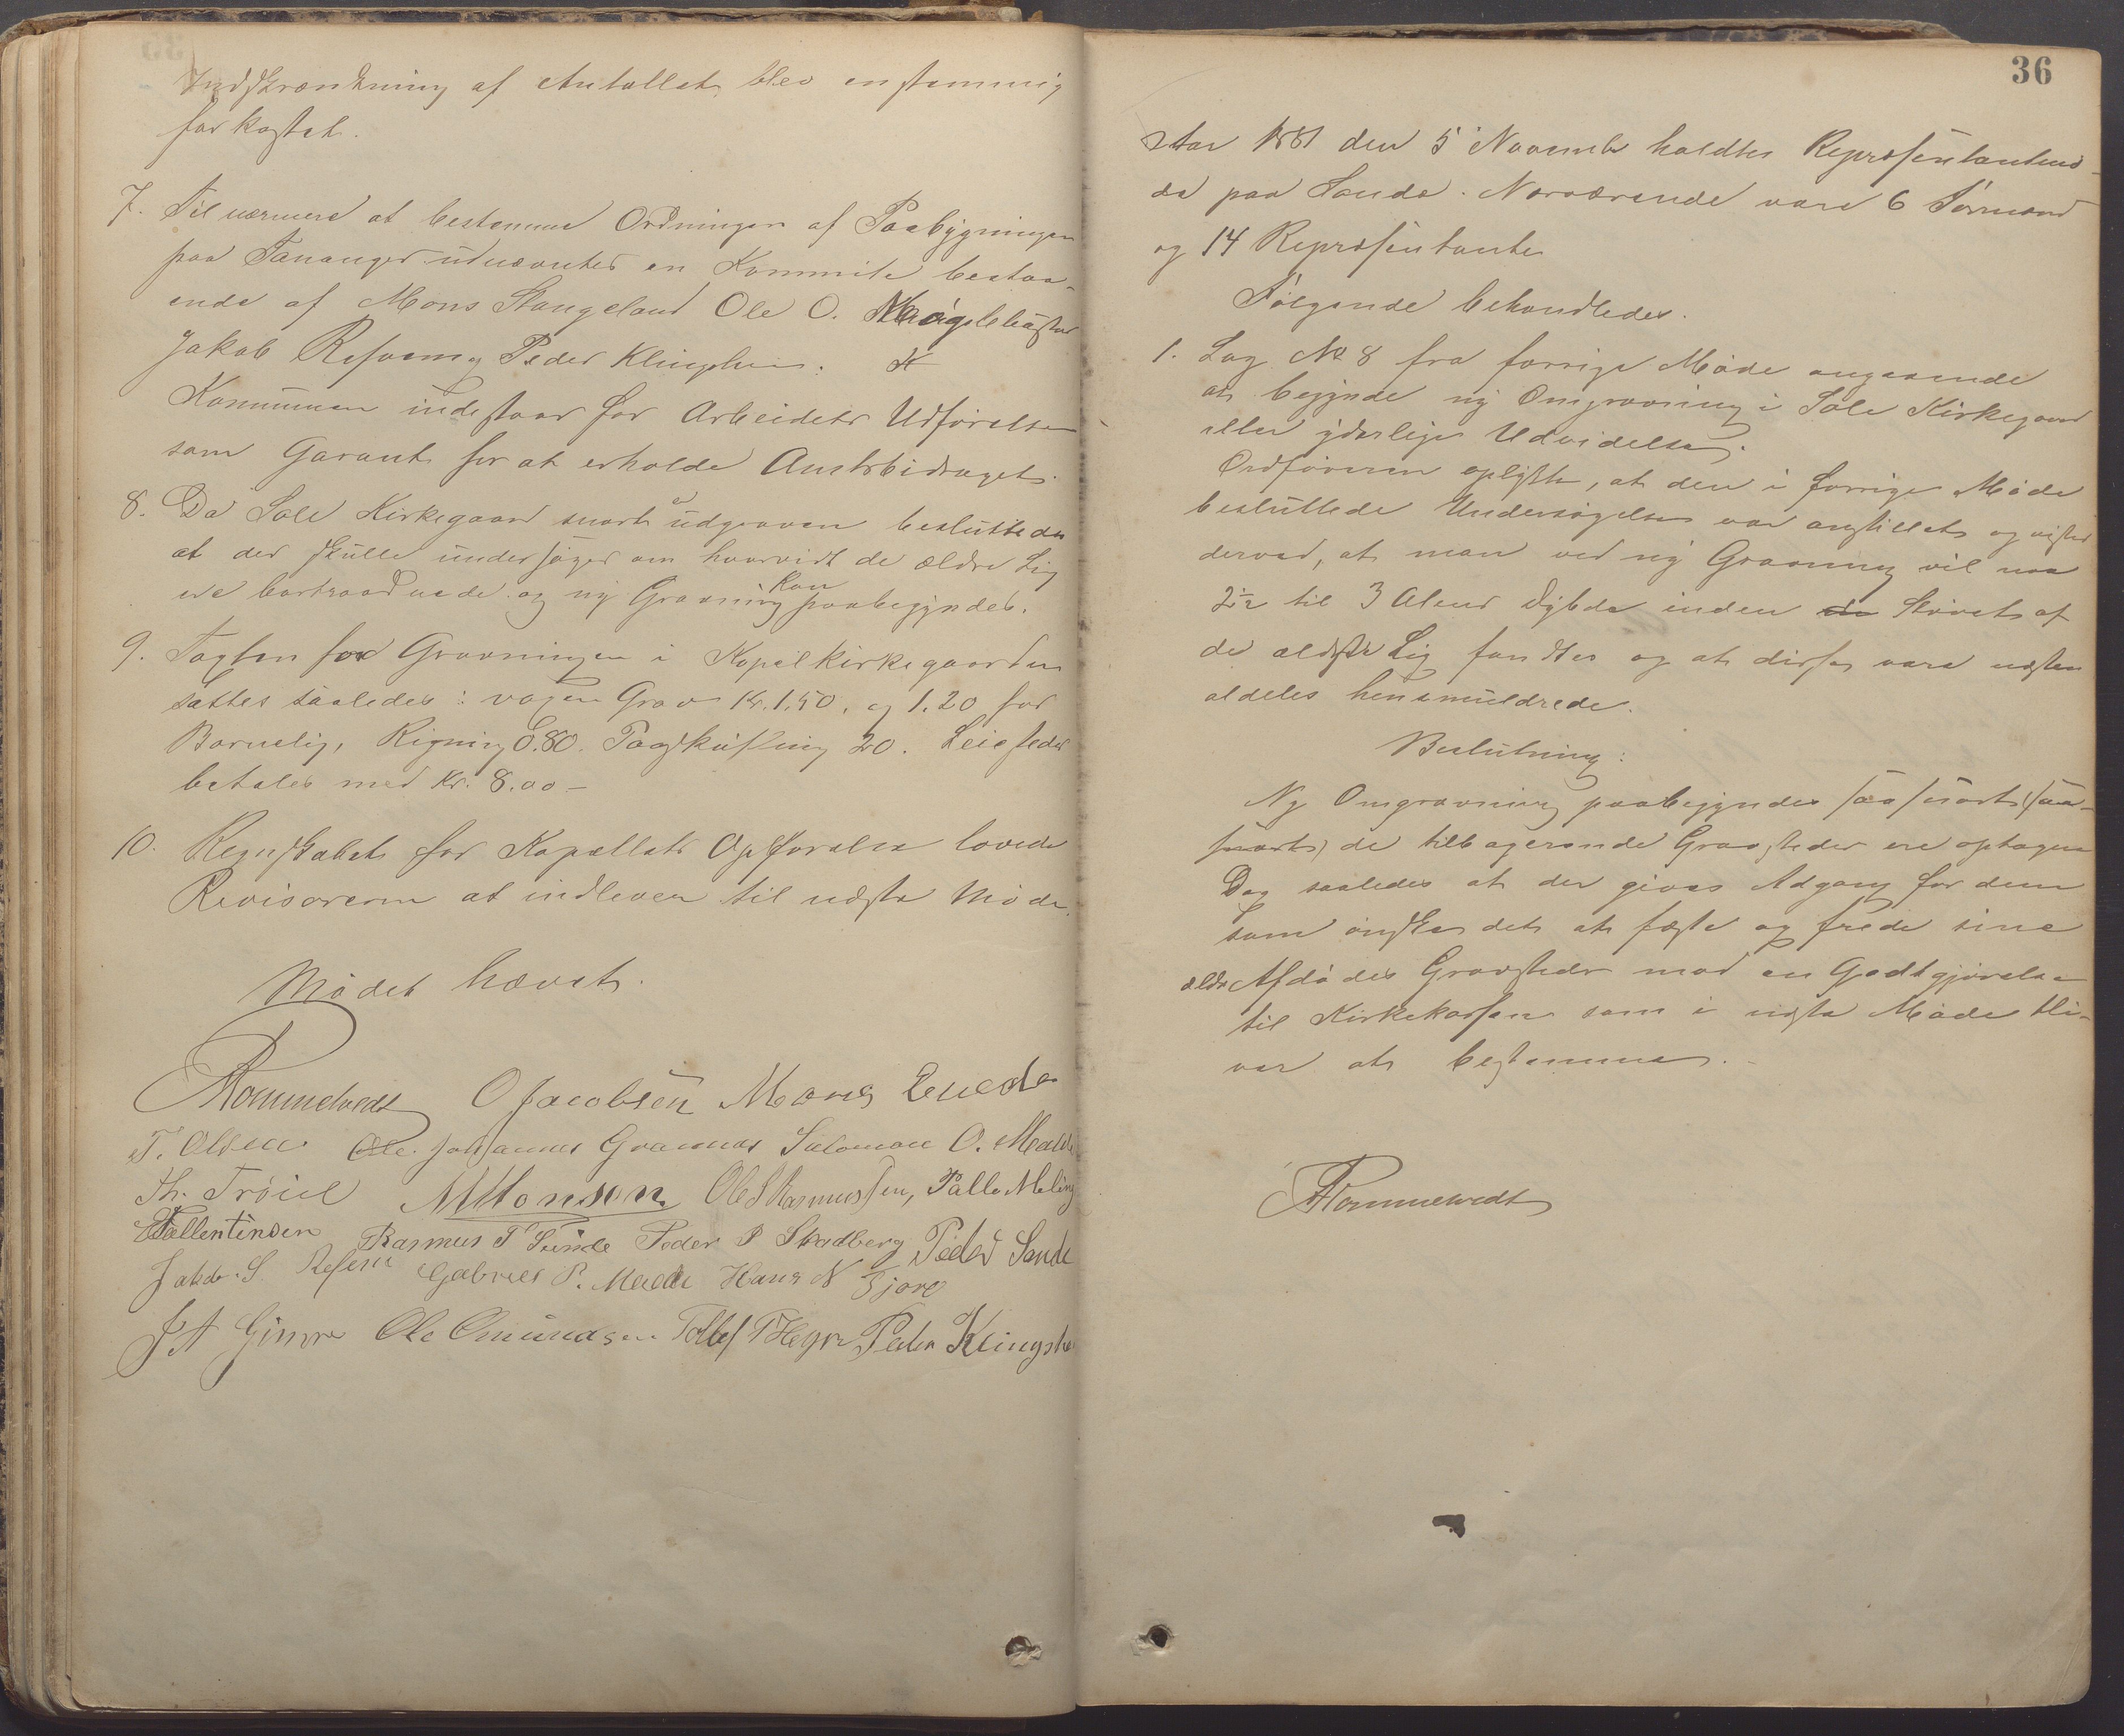 Indskrænkning af Antallet blev enstemmig
forkastet.
7. Til nærmere at bestemme Ordningen af Paabygningen
paa Tananger udnævntes en Kommite bestaa-
ende af Mons Stangeland Ole O.
Jakob Refsem og Peder Klingsheim.
Kommunen indestaar for Arbeidets Udførelse
som Garant for at erholde Amtsbidraget.
8. Da Sole Kirkegaard snart er udgraven besluttedes
at der skulle undersøges om hvorvidt de ældre Lig
ere bortraadnede og ny Gravning kan paabegyndes.
9. Taxten for Gravningen i Kapelkirkegaarden
sættes saaledes: voxen Grav Kr. 1.50. og 1.20 for
Barnelig, Rigning 0.80. Paaskuffing 20. Leiesteder
betales med Kr. 8.00 —
10. Regnskabet for Kapellets Opførelse lovede
Revisorerne at indlevere til næste Møde.
Mødet hævet.
Rommetvedt O Jacobsen Mons
T. Olsen Ole Johannes Grannes Salomon O. Malde
Th. Trøiel A Monson Ole S Rasmussen, Palle Meling
Vallentinsen Rasmus T Sunde Peder P Skadberg Peder Sande
Jakob S Refsem Gabriel P. Malde Hans N
J A Gimre Ole Omundsen Tollef T Hegre Peder Klingshe
36
Aar 1881 den 5 Novembr holdtes Repræsentantmø-
de paa Sande. Nærværende vare 6 Formænd
og 14 Repræsentanter
Følgende behandledes.
1. Sag No 8 fra forrige Møde angaaende
at begynde ny Omgravning i Sole Kirkegaard
eller yderlige Udvidelse.
Ordføreren oplyste, at den i forrige Møde
besluttede Undersøgelse var anstillet og vistes
derved, at man ved ny Gravning vil naa
2½ til 3 Alens Dybde inden Støvet af
de ældste Lig fandtes og at disse vare næsten
aldeles hensmuldrede.
Beslutning:
Ny Omgravning paabegyndes saasnart (saa-
snart) de tilbageværende Gravsteder ere optagne
Dog saaledes at der gives Adgang for dem
som ønsker det at fæste og frede sine
ældre Afdødes Gravsteder mod en Godtgjørelse
til Kirkekassen som i næste Møde bli-
ver at bestemme.
Rommetvedt